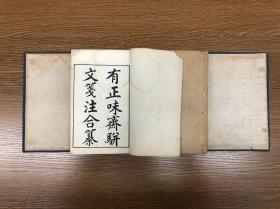 有正味齋駢
文箋注合纂